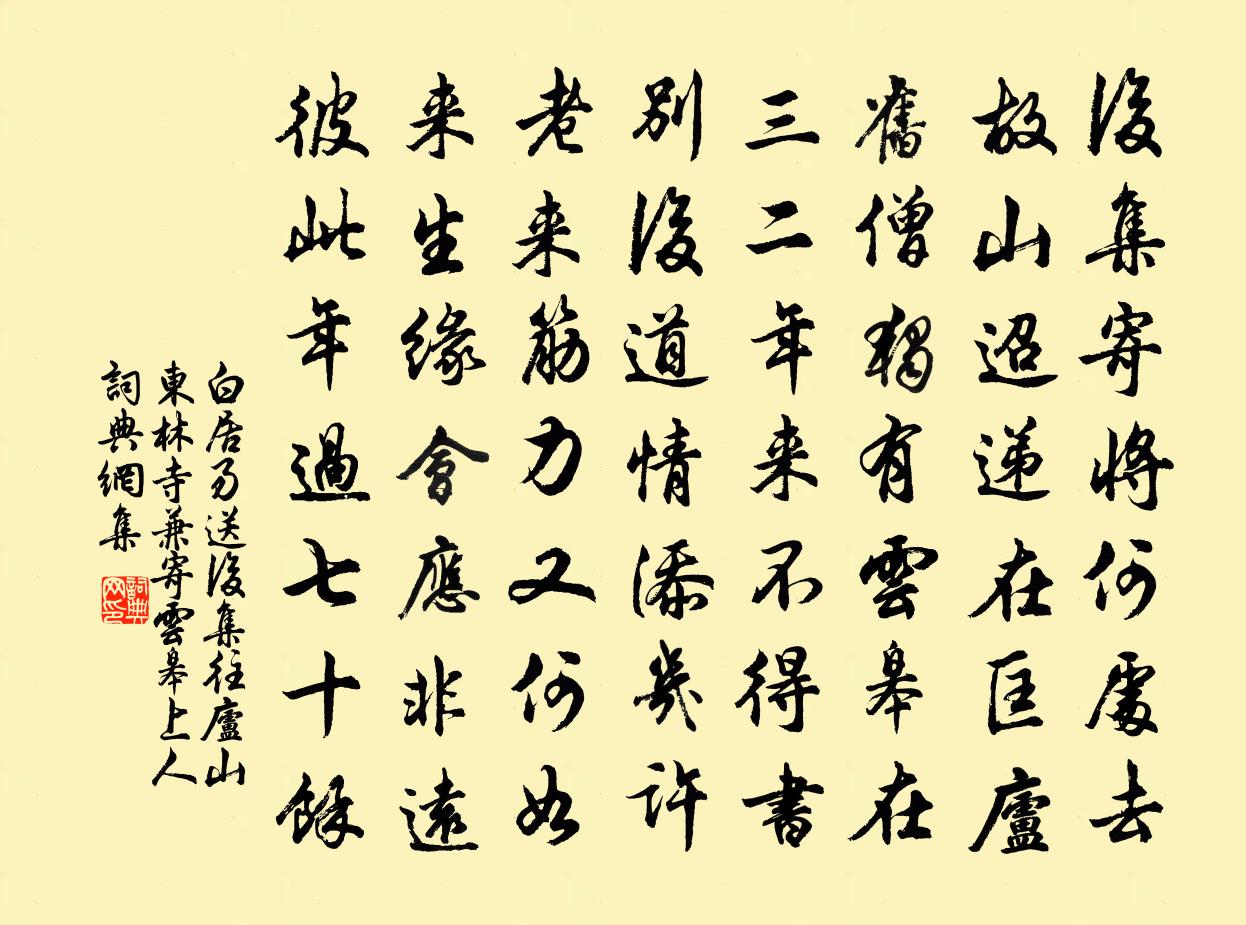 後集寄將何處去
故山迢递在匡廬
舊僧獨有雲皋在
三二年来不得書
別後道情添幾許
老来筋力又何如
来生緣會應非遠
彼此年過七十餘
白居易送後集往廬山
東林寺兼寄雲皋上人
詞典網集
詞典
网印